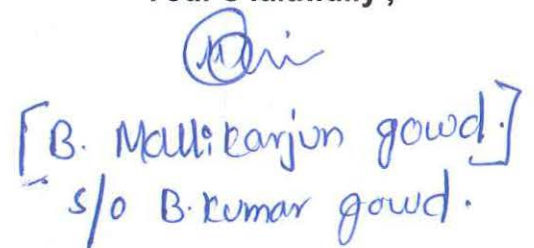 [B. Mallikarjun gowd.]
s/o B. Kumar gowd.